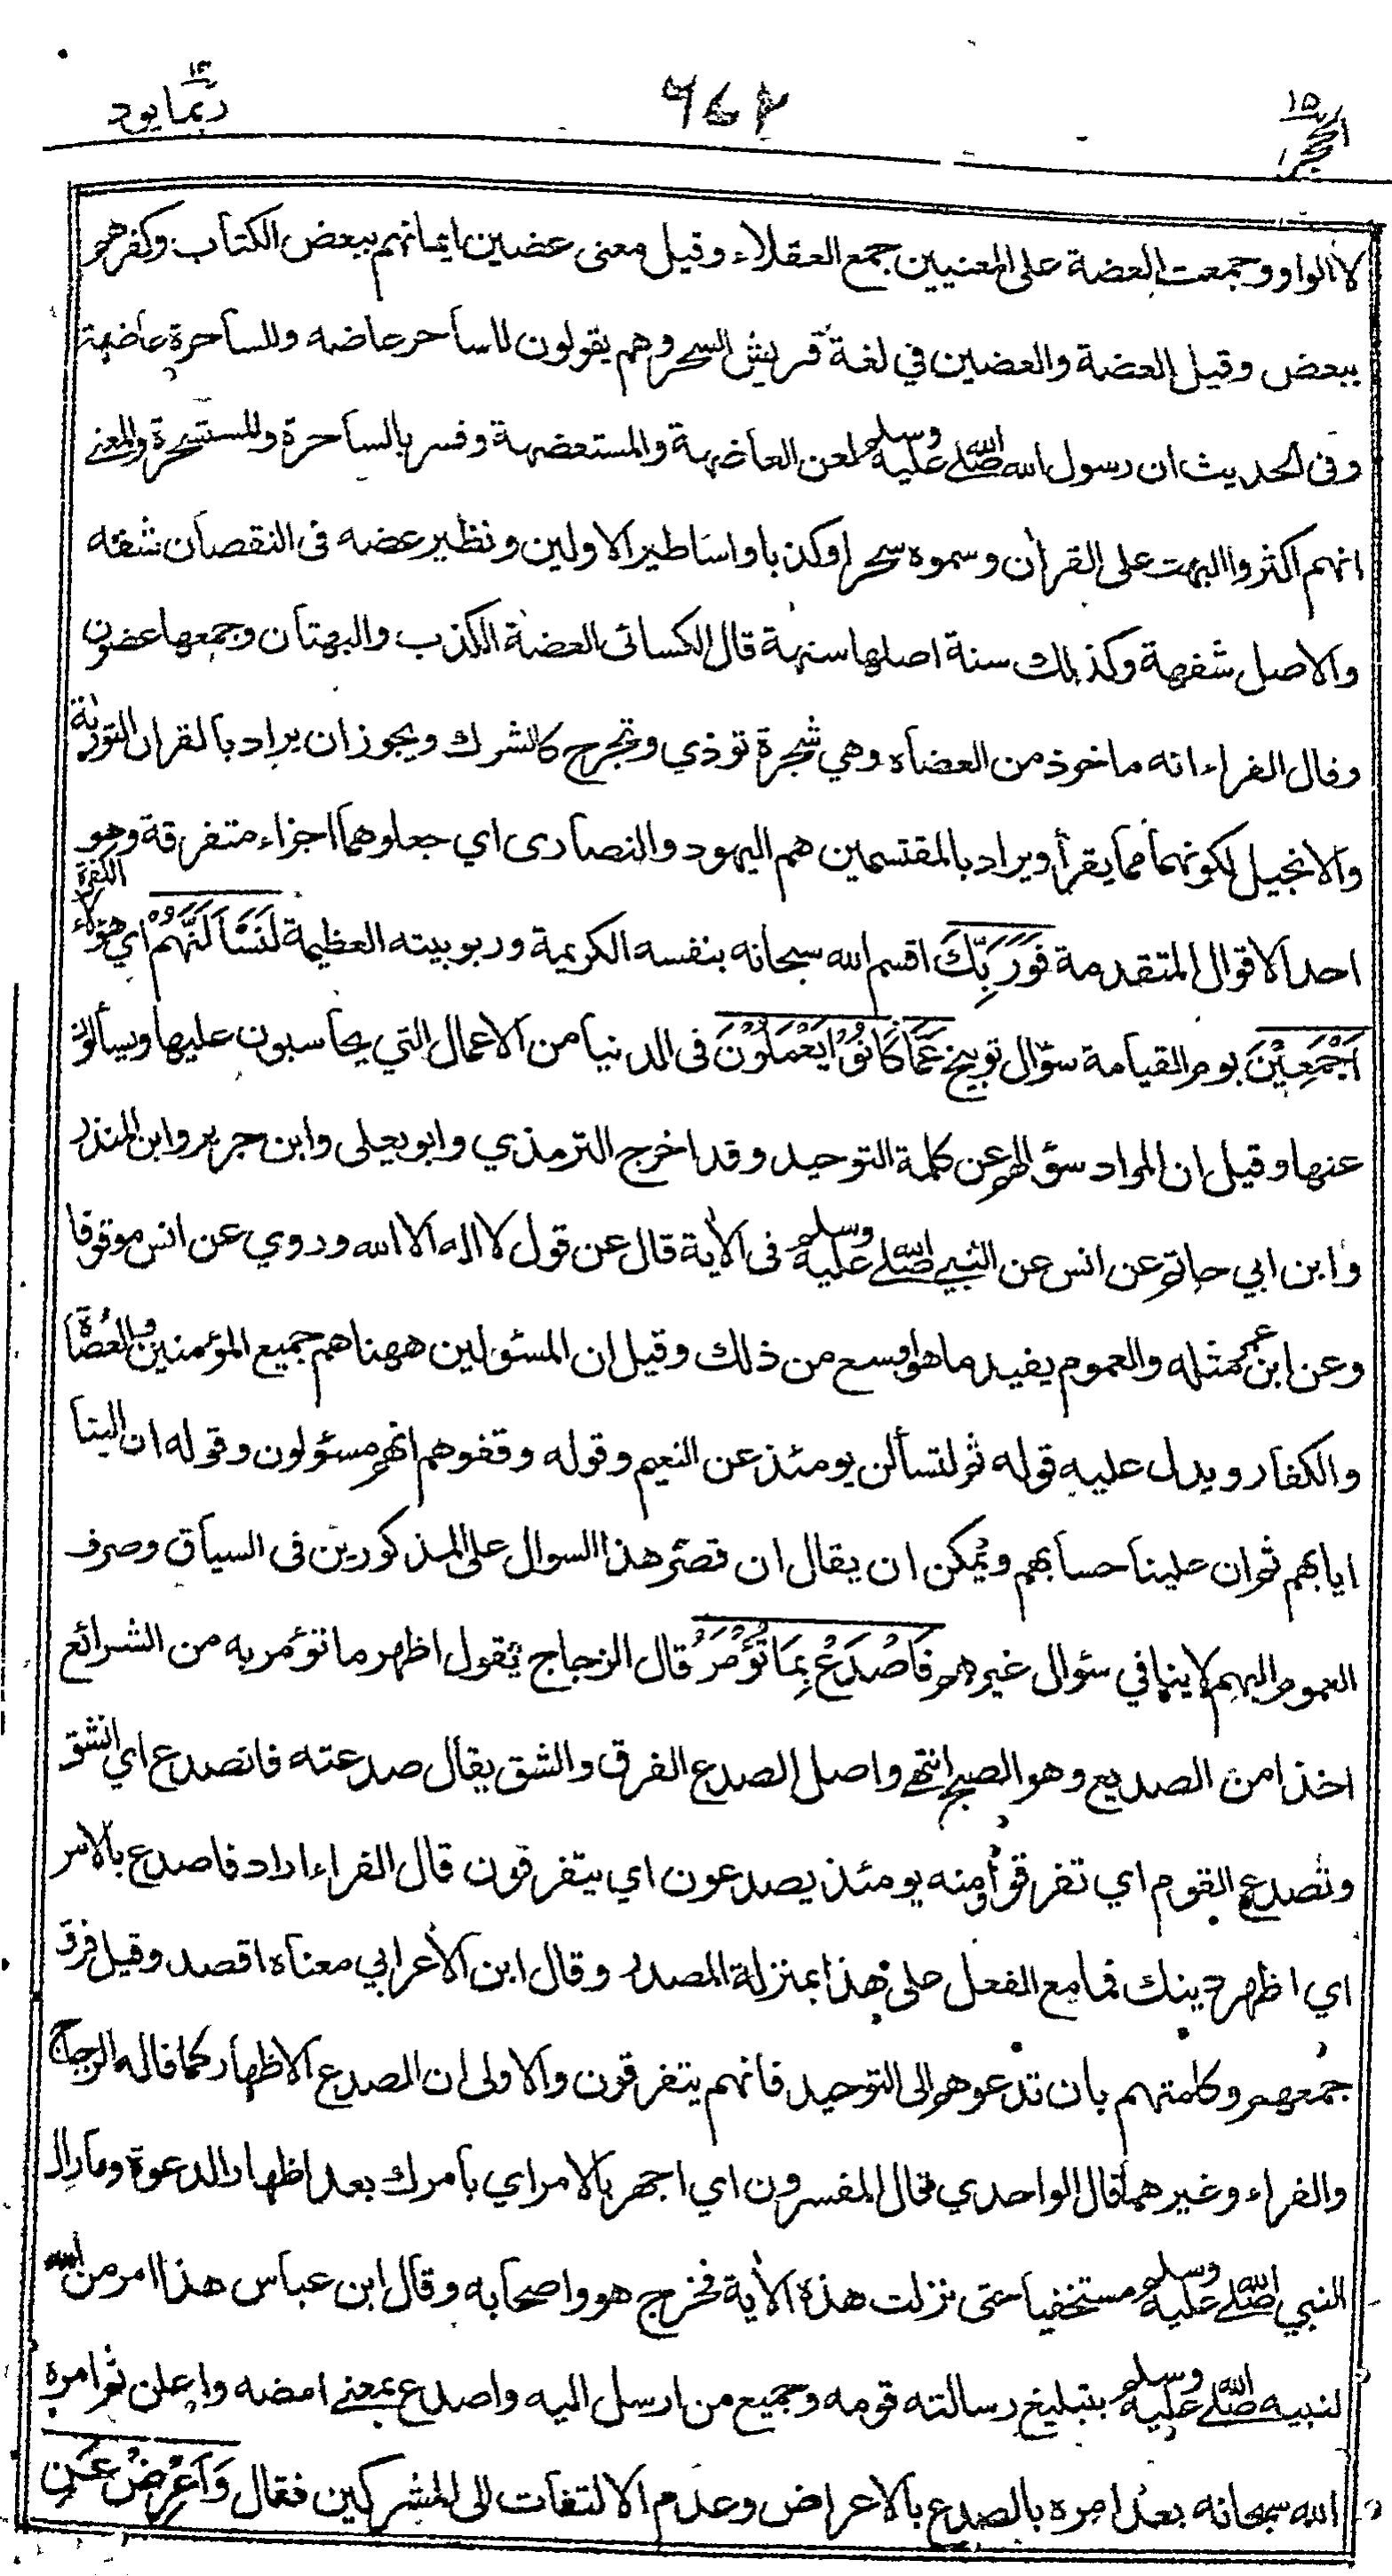 الحجر ١٥
٩٦٢
ربما يود ١٤
لا الواو وجمعت العضة على المعنيين جمع العقلاء وقيل معنى عضين ايمانهم ببعض الكتاب وكفرهم
ببعض وقيل العضة والعضين في لغة قريش السحر وهم يقولون للساحر عاضه وللساحرة عاضهة
وفى الحديث ان رسول الله صلى الله عليه وسلم لعن العاضهة والمستعضهة وفسر بالساحرة والمستسحرة والمعنى
انهم اكثروا البهت على القرأن وسموه سحرا وكذبا واساطير الاولين ونظير عضه فى النقصان شفه
والاصل شفهة وكذلك سنة اصلها سنهة قال الكسائى العضة الكذب والبهتان وجمعها عضون
وقال الفراء انه ماخوذ من العضاه وهي شجرة توذي وتجرح كالشرك ويجوز ان يراد بالقران التورىة
والانجيل لكونهما مما يقرأ ويراد بالمقتسمين هم اليهود والنصارى اي جعلوهما اجزاء متفرقة وهو
احد الاقوال المتقدمة فَوَرَبِّكَ اقسم الله سبحانه بنفسه الكريمة وربوبيته العظيمة لَنَسْأَلَنَّهُمْ اي هؤلاء الكفرة
اَجْمَعِيْنَ يوم القيامة سؤال توبيخ عَمَّا كَانُوْا يَعْمَلُوْنَ فى الدنيا من الاعمال التي يحاسبون عليها ويسألون
عنها وقيل ان المراد سؤالهم عن كلمة التوحيد وقد اخرج الترمذي وابو يعلى وابن جرير وابن المنذر
وابن ابي حاتم عن انس عن النبي صلى الله عليه وسلم فى الأية قال عن قول لا اله الا الله وروي عن انس موقوفا
وعن ابن عمر مثله والعموم يفيد ما هو اوسع من ذلك وقيل ان المسئولين ههنا هم جميع المؤمنين والعُصاة
والكفار ويدل عليه قوله ثم لتسألن يومئذ عن النعيم وقوله وقفوهم انهم مسؤلون وقوله ان الينا
ايابهم ثم ان علينا حسابهم ويمكن ان يقال ان قصر هذا السوال على المذكورين فى السياق وصرف
العموم اليهم لا ينافي سؤال غيرهم فَاصْدَعْ بِمَا تُؤْمَرُ قال الزجاج يقول اظهر ما تؤمر به من الشرائع
اخذا من الصديع وهو الصبح انتهى واصل الصدع الفرق والشق يقال صدعته فانصدع اي انشق
وتصدع القوم اي تفرقوا ومنه يومئذ يصدعون اي يتفرقون قال الفراء اراد فاصدع بالامر
اي اظهر دينك فما مع الفعل على هذا بمنزلة المصدر وقال ابن الأعرابي معناه اقصد وقيل فرق
جمعهم وكلمتهم بان تدعوهم الى التوحيد فانهم يتفرقون والاولى ان الصدع الاظهار كما قاله الزجاج
والفراء وغيرهما قال الواحدي قال المفسرون اي اجهر بالامر اي بامرك بعد اظهار الدعوة وما زال
النبي صلى الله عليه وسلم مستخفيا حتى نزلت هذه الأية فخرج هو واصحابه وقال ابن عباس هذا امر من الله
لنبيه صلى الله عليه وسلم بتبليغ رسالته قومه وجميع من ارسل اليه واصدع بمعنى امضه واعلن ثم امره
الله سبحانه بعد امره بالصدع بالاعراض وعدم الالتفات الى المشركين فقال وَاَعْرِضْ عَنِ